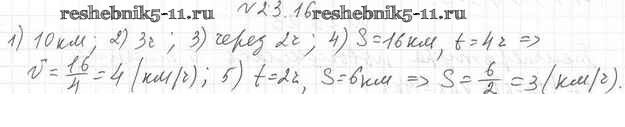 reshebnik5-11.ru N23.16 reshebnik5-11.ru
1) 10км; 2) 3ч; 3) через 2ч; 4) S=16км, t=4ч =>
v̄=16/4=4 (км/ч); 5) t=2ч, S=6км => S=6/2=3 (км/ч).